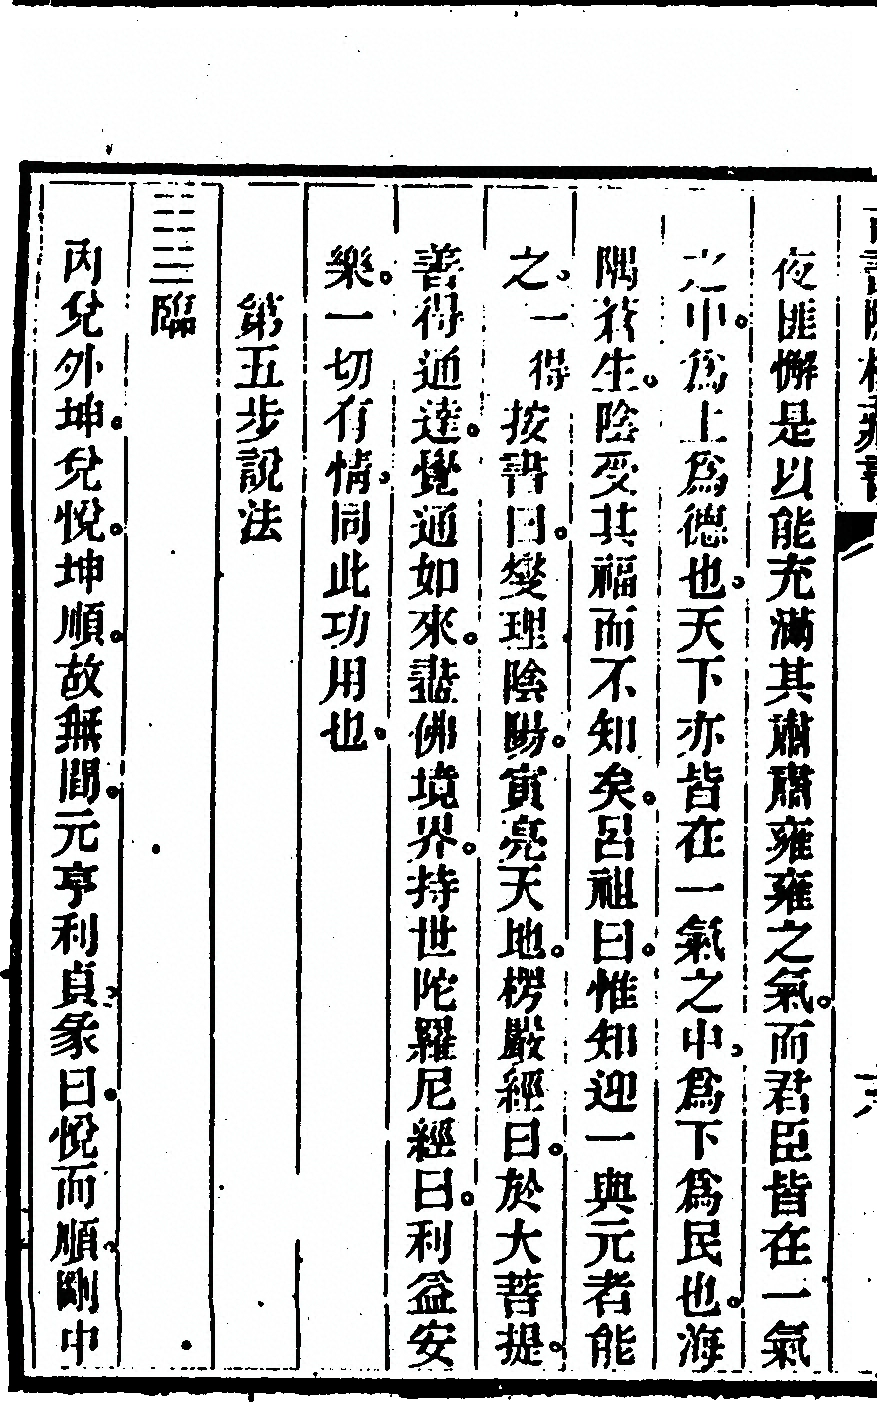 夜匪懈是以能充滿其肅肅雍雍之氣。而君臣皆在一氣
之中。爲上爲德也。天下亦皆在一氣之中。爲下爲民也。海
隅蒼生。陰受其福而不知矣。呂祖曰。惟知迎一與元者能
之。一得按書曰。燮理陰陽。寅亮天地。楞嚴經曰。於大菩提。
善得通達。覺通如來。盡佛境界。持世陀羅尼經曰。利益安
樂。一切有情。同此功用也。
第五步說法
䷒臨
內兌外坤。兌悅。坤順。故無間。元亨利貞。彖曰。悅而順。剛中